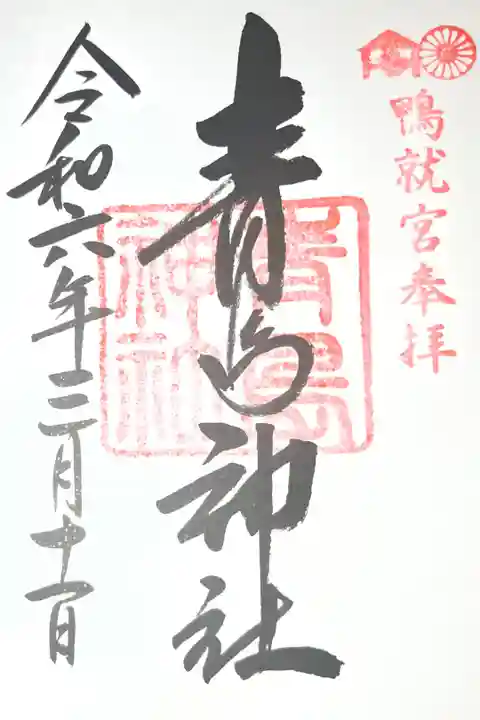 鴨就宮奉拝
青島神社
青島
神社
令和六年三月十一日